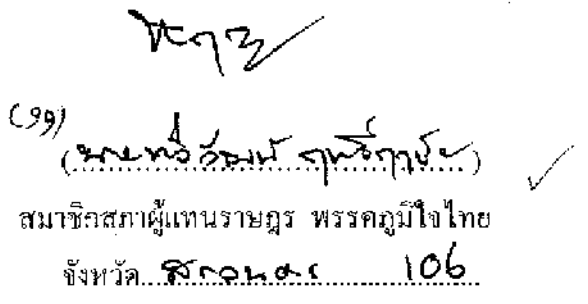 (99)
(นายทวีวัฒน์ ฤทธิ์ฤาชัย)
สมาชิกสภาผู้แทนราษฎร พรรคภูมิใจไทย
จังหวัด สกลนคร 106